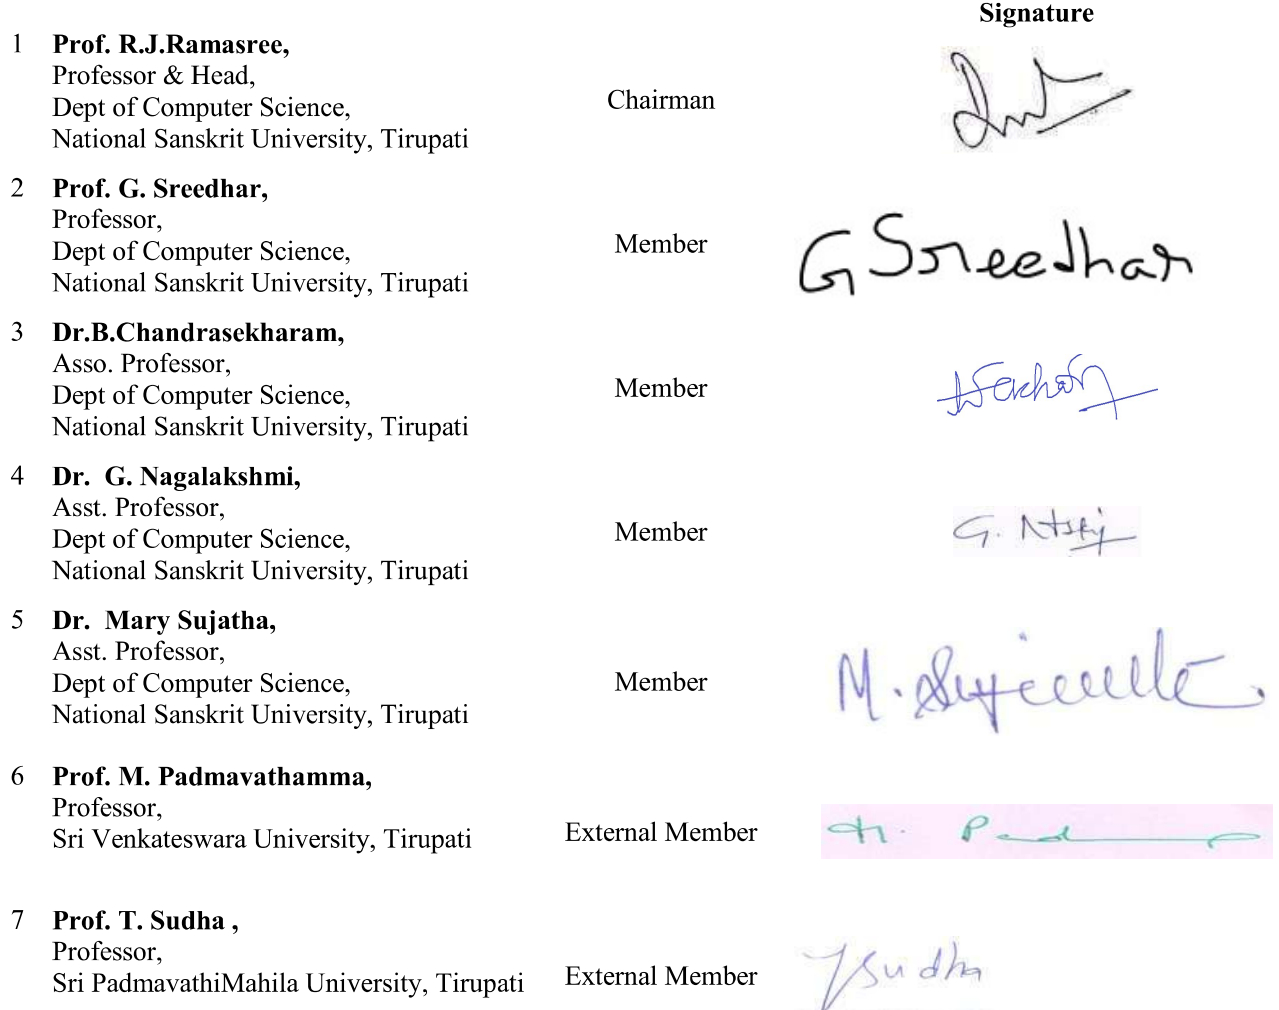 Signature
1 Prof. R.J.Ramasree,
Professor & Head,
Dept of Computer Science,
National Sanskrit University, Tirupati
Chairman
2 Prof. G. Sreedhar,
Professor,
Dept of Computer Science,
National Sanskrit University, Tirupati
Member
G Sreedhar
3 Dr.B.Chandrasekharam,
Asso. Professor,
Dept of Computer Science,
National Sanskrit University, Tirupati
Member
4 Dr. G. Nagalakshmi,
Asst. Professor,
Dept of Computer Science,
National Sanskrit University, Tirupati
Member
G.
5 Dr. Mary Sujatha,
Asst. Professor,
Dept of Computer Science,
National Sanskrit University, Tirupati
Member
M.
6 Prof. M. Padmavathamma,
Professor,
Sri Venkateswara University, Tirupati
External Member
7 Prof. T. Sudha ,
Professor,
Sri PadmavathiMahila University, Tirupati
External Member
TSudha